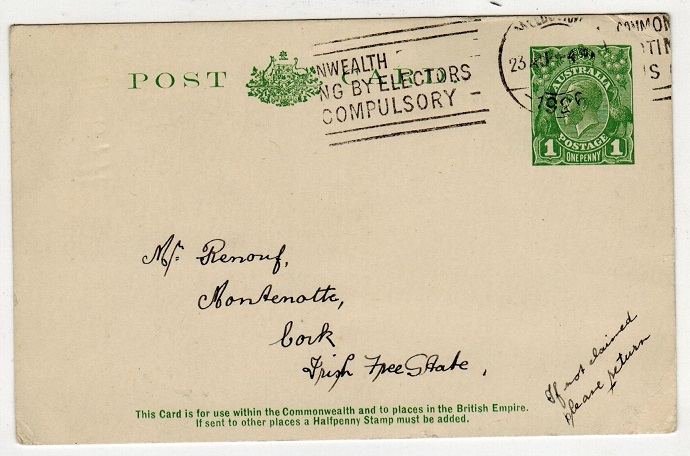 POST CARD
NWEALTH
NG BY ELECTORS
COMPULSORY
MELBOURNE
23
1926
COMMON
OTIN
IS
AUSTRALIA
1 POSTAGE 1
ONE PENNY
Mr. Renouf,
Montenotte,
Cork
Irish Free State,
If not claimed
please return
This Card is for use within the Commonwealth and to places in the British Empire.
If sent to other places a Halfpenny Stamp must be added.